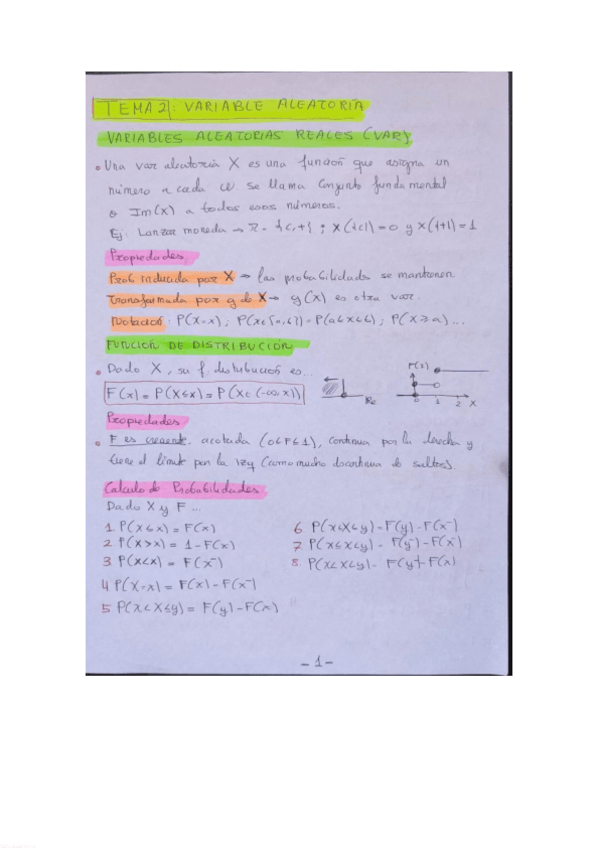 TEMA 2: VARIABLE ALEATORIA
VARIABLES ALEATORIAS REALES (VAR)
• Una var aleatoria X es una función que asigna un
número a cada ω se llama conjunto fundamental
a Im(X) a todos esos números.
Ej: Lanzar moneda → Ω = {c,+} ; X({c}) = 0 y X({+}) = 1
Propiedades
Prob inducida por X → las probabilidades se mantienen
Transformada por g de X → g(X) es otra var.
Notación: P(X=x) ; P(X∈[a,b]) = P(a≤X≤b) ; P(X≥a)...
FUNCIÓN DE DISTRIBUCIÓN
• Dado X, su f. distribución es...
F(x) = P(X≤x) = P(X∈(-∞,x])
F(x)
0 1 2 X
Propiedades
• F es creciente, acotada (0≤F≤1), continua por la derecha y
tiene límite por la izq (como mucho discontinua de saltos).
Calculo de Probabilidades
Dado X y F ...
1. P(X≤x) = F(x)
2 P(X>x) = 1-F(x)
3 P(X<x) = F(x⁻)
4 P(X=x) = F(x) - F(x⁻)
5 P(x<X≤y) = F(y) - F(x)
6 P(x≤X≤y) = F(y) - F(x⁻)
7 P(x≤X<y) = F(y⁻) - F(x⁻)
8 P(x<X<y) = F(y⁻) - F(x)
- 1 -